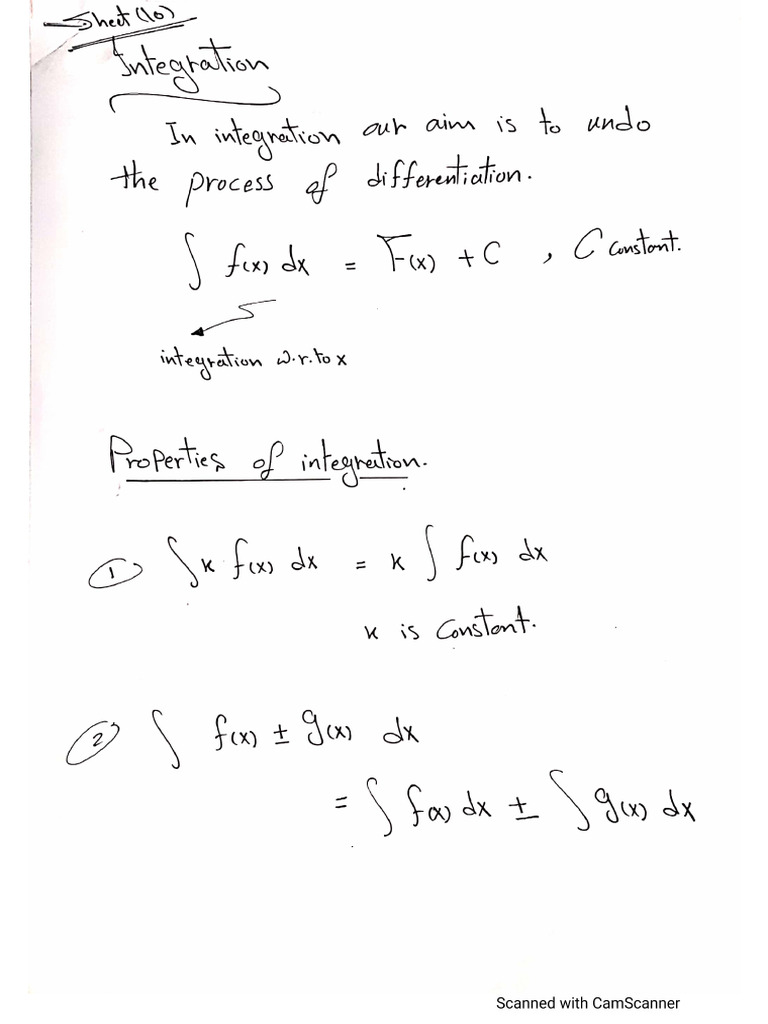 Sheet (10)
Integration
In integration our aim is to undo
the process of differentiation.
∫ f(x) dx = F(x) + C , C constant.
integration w.r.to x
Properties of integration.
① ∫ k f(x) dx = k ∫ f(x) dx
k is constant.
② ∫ f(x) ± g(x) dx
= ∫ f(x) dx ± ∫ g(x) dx
Scanned with CamScanner